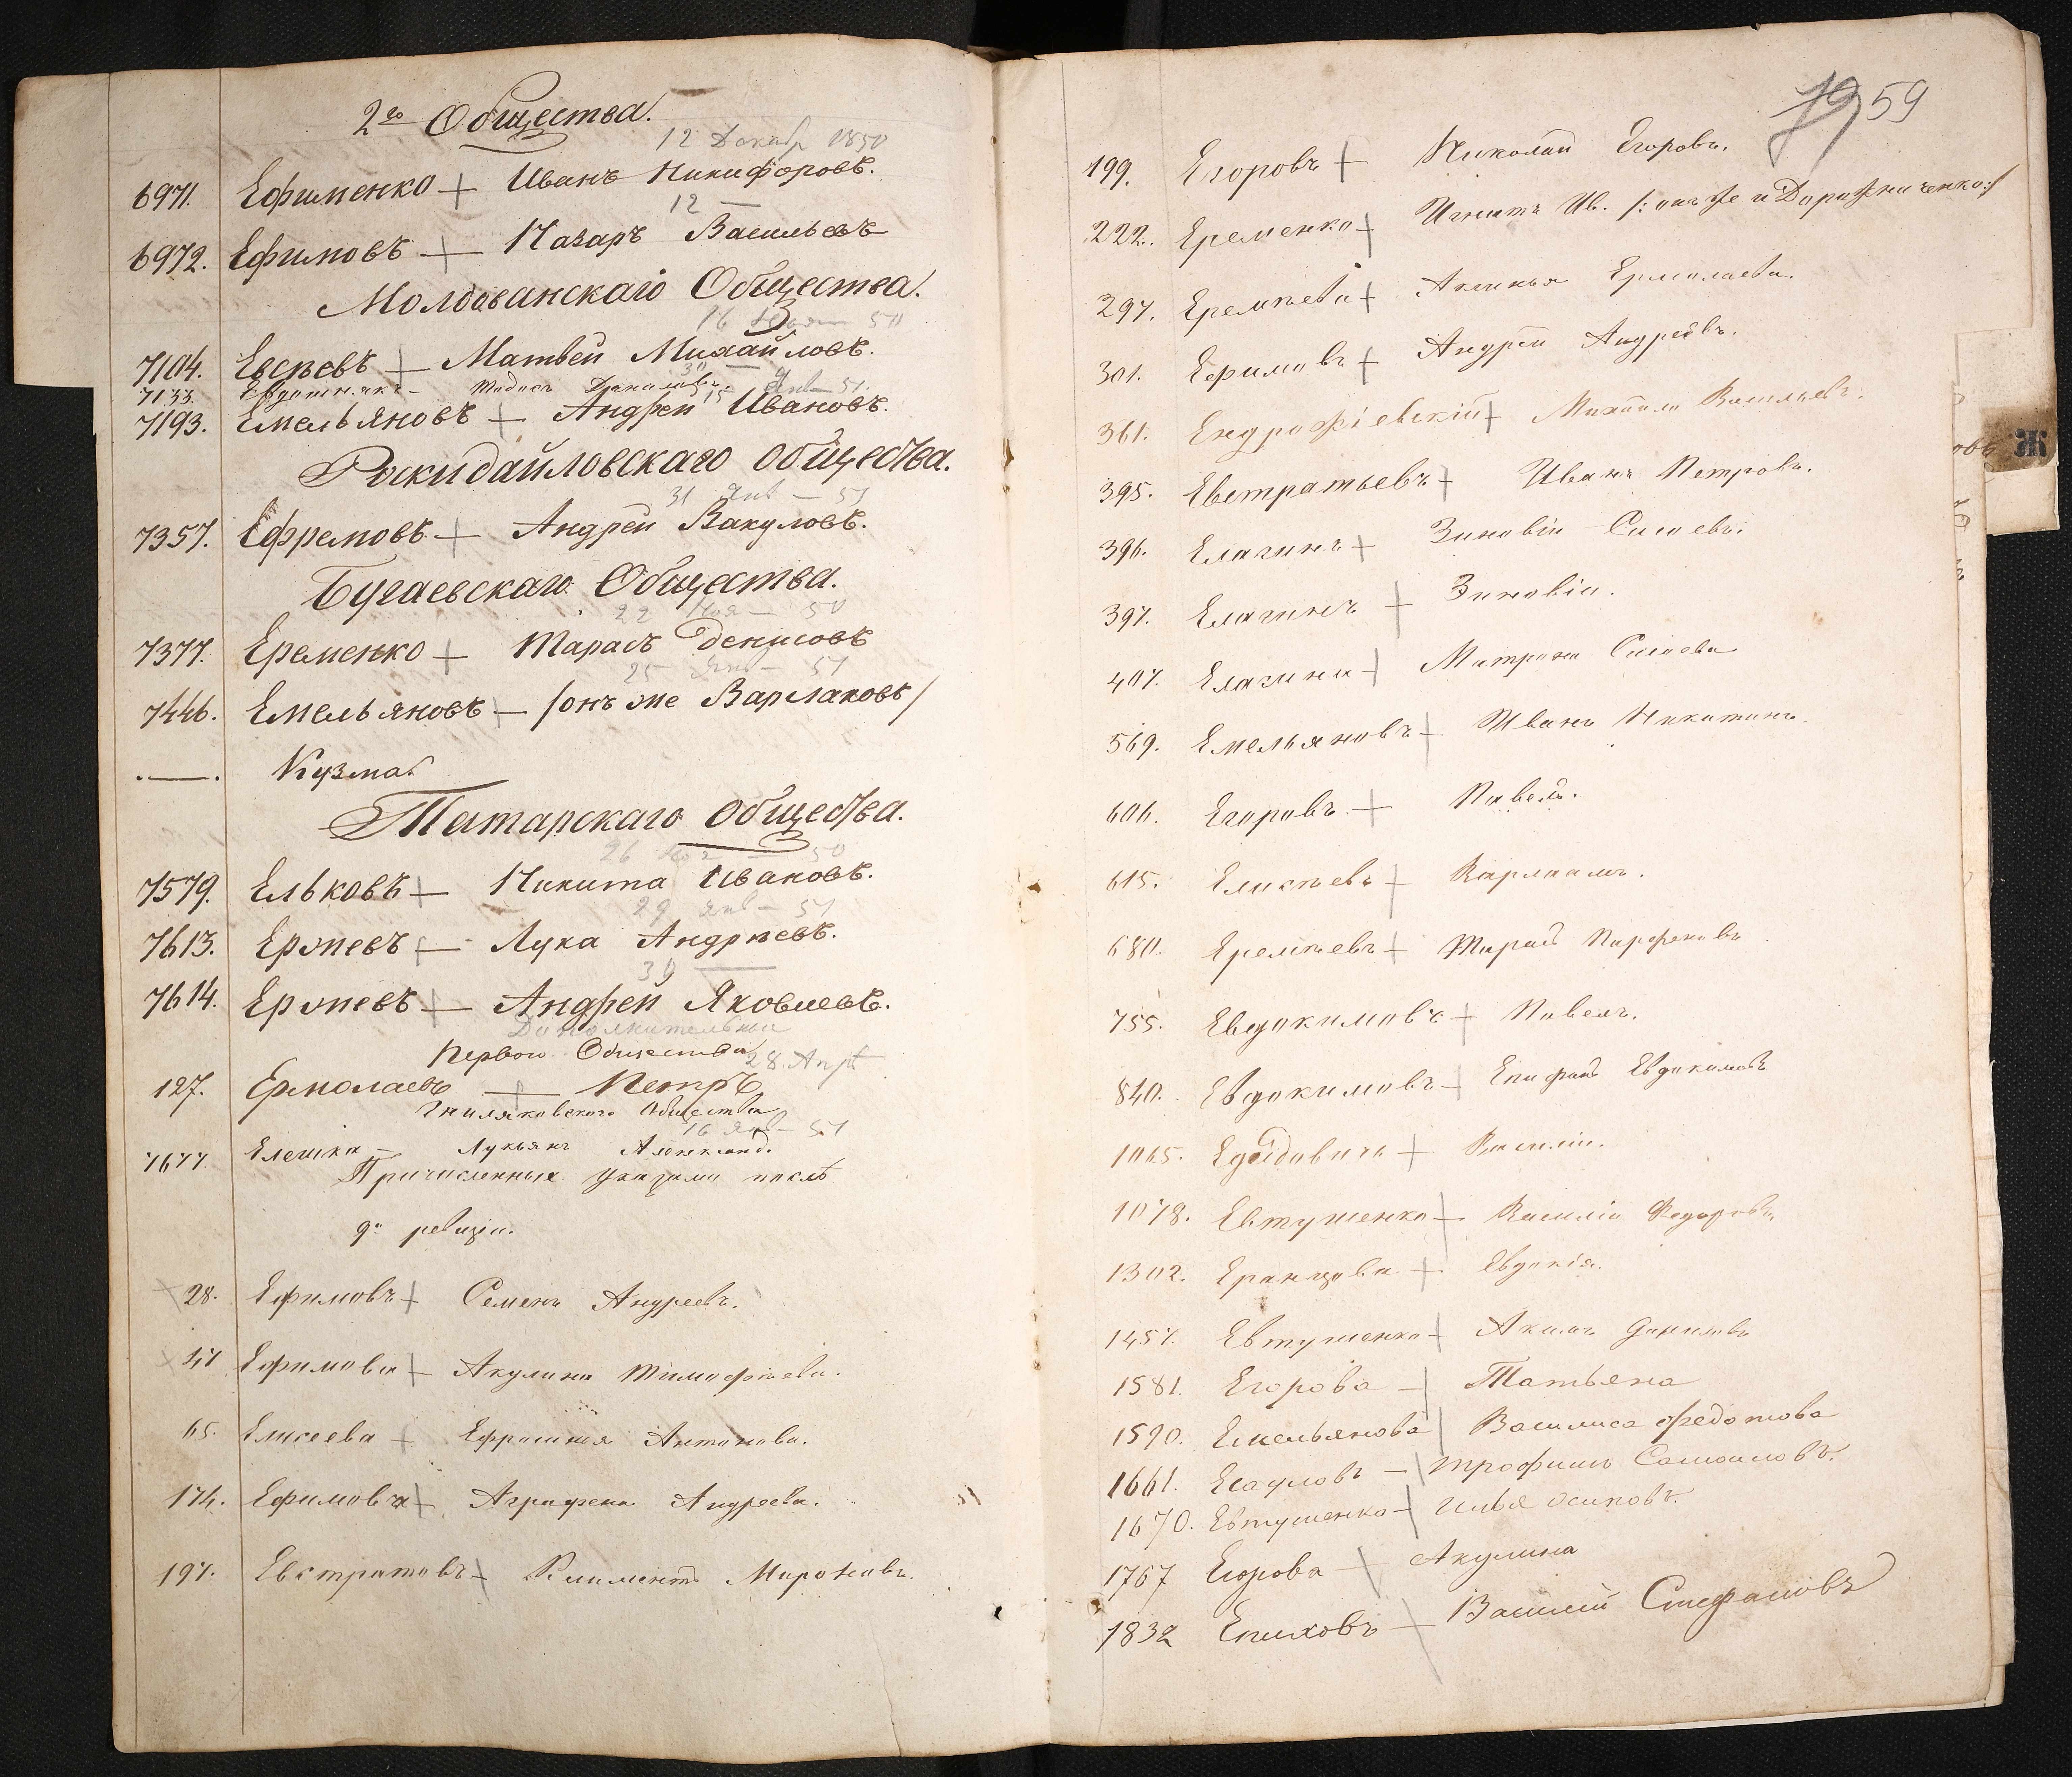 2го Общества.
12 Декабр 1850
6971. Ефименко — Иванъ Никифоровъ.
12 —
6972. Ефимовъ — Назаръ Васильевъ
Молдованскаго Общества.
16 50
7104. Евсѣевъ — Матвей Михайловъ.
30 —
7133. Данилов.
15 Янв — 51.
7193. Емельяновъ — Андрей Ивановъ.
Роскидайловскаго общества.
31 Янв — 51
7357. Ефремовъ — Андрей Вакуловъ.
Бугаевскаго Общества.
22 Ноя — 50
7377. Еременко — Тарасъ Денисовъ
25 Янв — 51
7446. Емельяновъ — /онъ же Варлаковъ/
.—. Кузма
Татарскаго общества.
26 Ноя 50
7579. Ельковъ — Никита Ивановъ.
29 Янв — 51
7613. Ерѳиевъ — Лука Андрѣевъ.
30 —
7614. Ерѳиевъ — Андрей Яковлевъ.
Дополнительно
Первого Общества
28. Апр
127. Ермолаевъ — Петръ
Гниляковского Общества
16 Янв — 51
7677. Елешка — Лукьянъ Александ.
Причисленные указами послѣ
9й ревизіи.
28. Ефимовъ Семенъ Андреевъ.
47 Ефимова Акулина Тимофѣева.
65. Елисеева Ефросинія Антонова.
174. Ефимова Аграфена Андреева.
197. Евстратовъ Климентъ Мироновъ.
79 59
199. Егоровъ Николай Егоровъ.
222. Еременко Игнатъ Ив. /: онъ же и Дорожниченко:/
297. Еремѣева Аксинья Ермолаева.
301. Ефимовъ Андрей Андреевъ.
361. Ендрожіевскій Михаилъ Васильевъ.
395. Евстратьевъ Иванъ Петровъ.
396. Елагинъ Зиновій Сысоевъ.
397. Елагинъ Зиновій.
407. Елагина Матрона Сысоева
569. Емельяновъ Иванъ Никитинъ.
606. Егоровъ Павелъ.
615. Елисѣевъ Варлаамъ.
680. Еремѣевъ Тарасъ Парфеновъ
755. Евдокимовъ Павелъ.
840. Евдокимовъ Епифанъ Евдокимовъ
1065. Василій.
1078. Евтушенко Василій Федоровъ.
1302. Еранцова Евдокія.
1457. Евтушенко Акимъ Даниловъ
1581. Егорова — Татьяна
1590. Емельянова Василиса Федотова
1661. Есауловъ — Трофимъ Самоиловъ.
1670. Евтушенко Илья Осиповъ.
1767 Егорова — Акулина
1832 Епиховъ — Василий Стефановъ